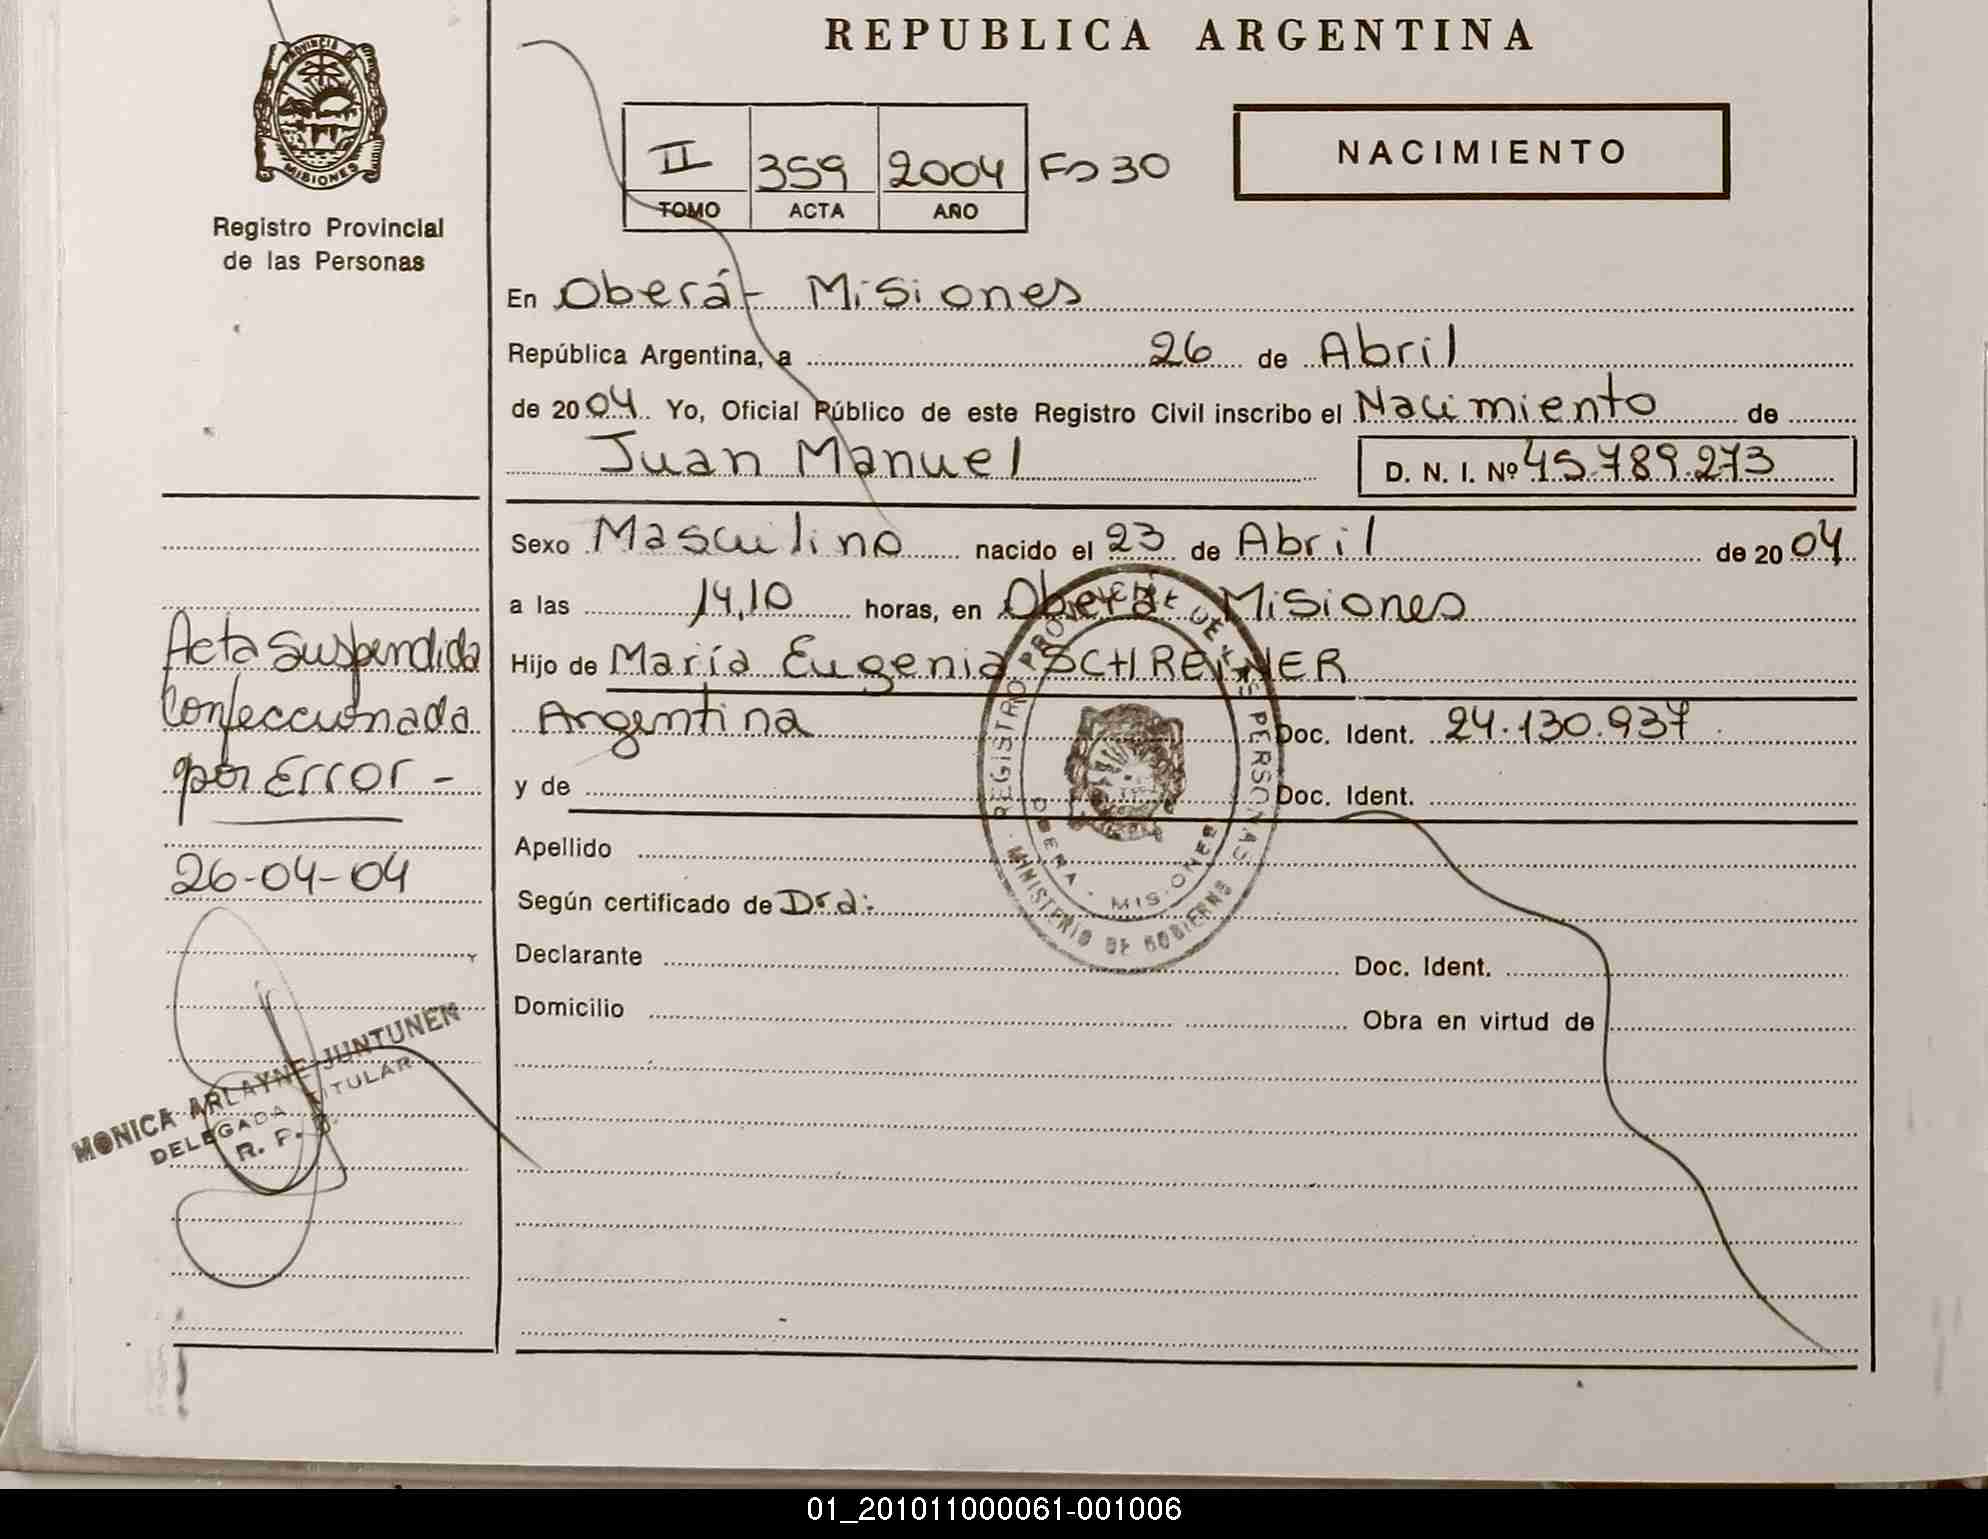 REPUBLICA ARGENTINA
PROVINCIA DE
MISIONES
Registro Provincial
de las Personas
II 359 2004 Fo 30
TOMO ACTA AÑO
NACIMIENTO
En Oberá - Misiones
República Argentina, a 26 de Abril
de 2004 Yo, Oficial Público de este Registro Civil inscribo el Nacimiento de
Juan Manuel
D. N. I. Nº 45.789.273
Sexo Masculino nacido el 23 de Abril de 2004
a las 14,10 horas, en Oberá Misiones
Hijo de María Eugenia SCHREINER
Argentina Doc. Ident. 24.130.937
y de Doc. Ident.
Apellido
Según certificado de Dra:
Declarante Doc. Ident.
Domicilio Obra en virtud de
REGISTRO PROVINCIAL DE LAS PERSONAS
MINISTERIO DE GOBIERNO
OBERA - MISIONES
Acta Suspendida
Confeccionada
por Error -
26-04-04
MONICA ARLAYNE JUNTUNEN
DELEGADA TITULAR
R. P.
01_201011000061-001006